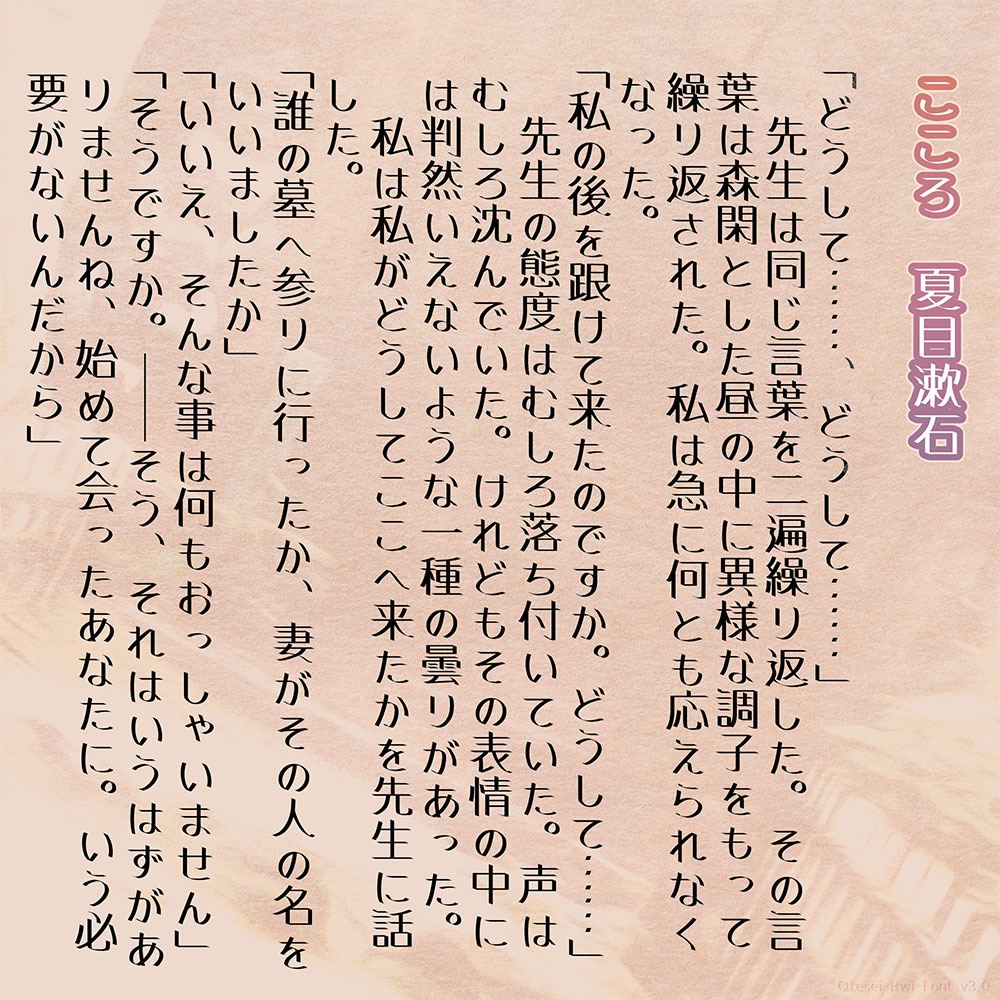 こころ 夏目漱石
「どうして……、どうして……」
先生は同じ言葉を二遍繰り返した。その言
葉は森閑とした昼の中に異様な調子をもって
繰り返された。私は急に何とも応えられなく
なった。
「私の後を跟けて来たのですか。どうして……」
先生の態度はむしろ落ち付いていた。声は
むしろ沈んでいた。けれどもその表情の中に
は判然いえないような一種の曇りがあった。
私は私がどうしてここへ来たかを先生に話
した。
「誰の墓へ参りに行ったか、妻がその人の名を
いいましたか」
「いいえ、そんな事は何もおっしゃいません」
「そうですか。――そう、それはいうはずがあ
りませんね、始めて会ったあなたに。いう必
要がないんだから」
Otesei-Rwl-Font v3.0